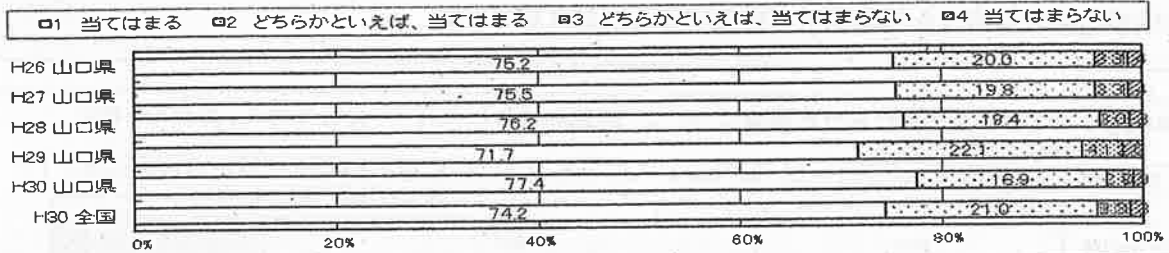 1 当てはまる 2 どちらかといえば、当てはまる 3 どちらかといえば、当てはまらない 4 当てはまらない
H26 山口県 75.2 20.0
H27 山口県 75.5 19.8 3.3
H28 山口県 76.2 19.4 3.0
H29 山口県 71.7 22.1
H30 山口県 77.4 18.9
H30 全国 74.2 21.0 3.3
0% 20% 40% 60% 80% 100%